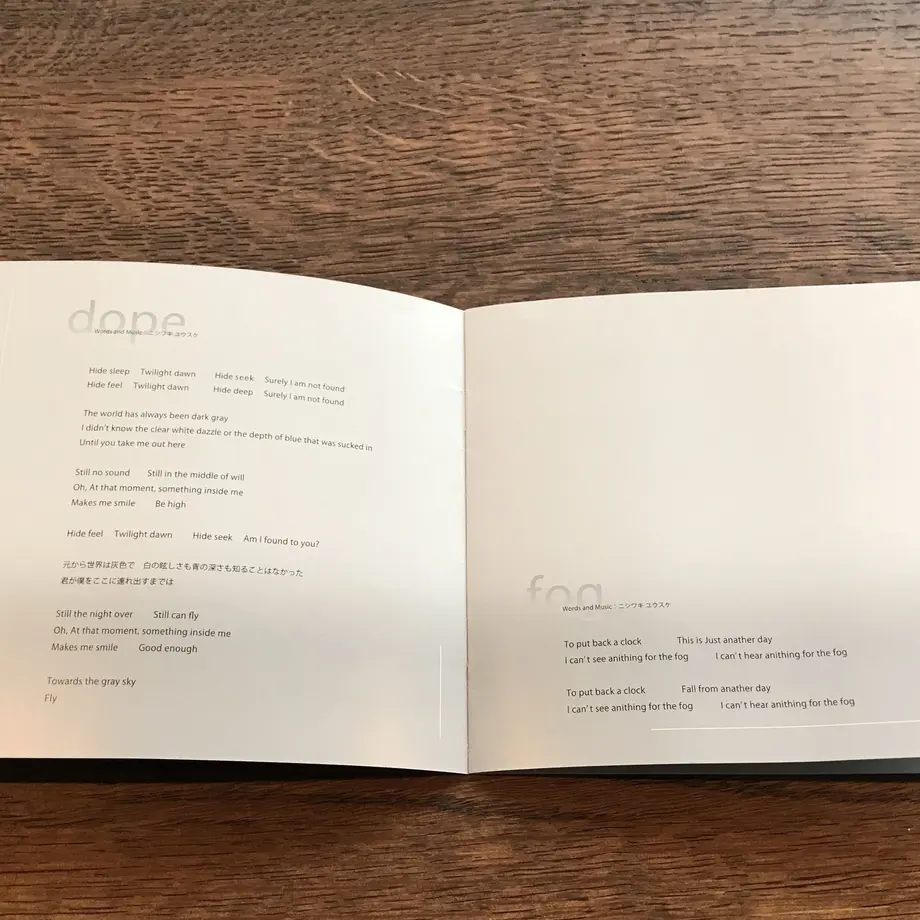 dope
Words and Music：ニシワキ ユウスケ
Hide sleep Twilight dawn Hide seek Surely I am not found
Hide feel Twilight dawn Hide deep Surely I am not found
The world has always been dark gray
I didn't know the clear white dazzle or the depth of blue that was sucked in
Until you take me out here
Still no sound Still in the middle of will
Oh, At that moment, something inside me
Makes me smile Be high
Hide feel Twilight dawn Hide seek Am I found to you?
元から世界は灰色で 白の眩しさも青の深さも知ることはなかった
君が僕をここに連れ出すまでは
Still the night over Still can fly
Oh, At that moment, something inside me
Makes me smile Good enough
Towards the gray sky
Fly
fog
Words and Music：ニシワキ ユウスケ
To put back a clock This is Just anather day
I can't see anithing for the fog I can't hear anithing for the fog
To put back a clock Fall from anather day
I can't see anithing for the fog I can't hear anithing for the fog